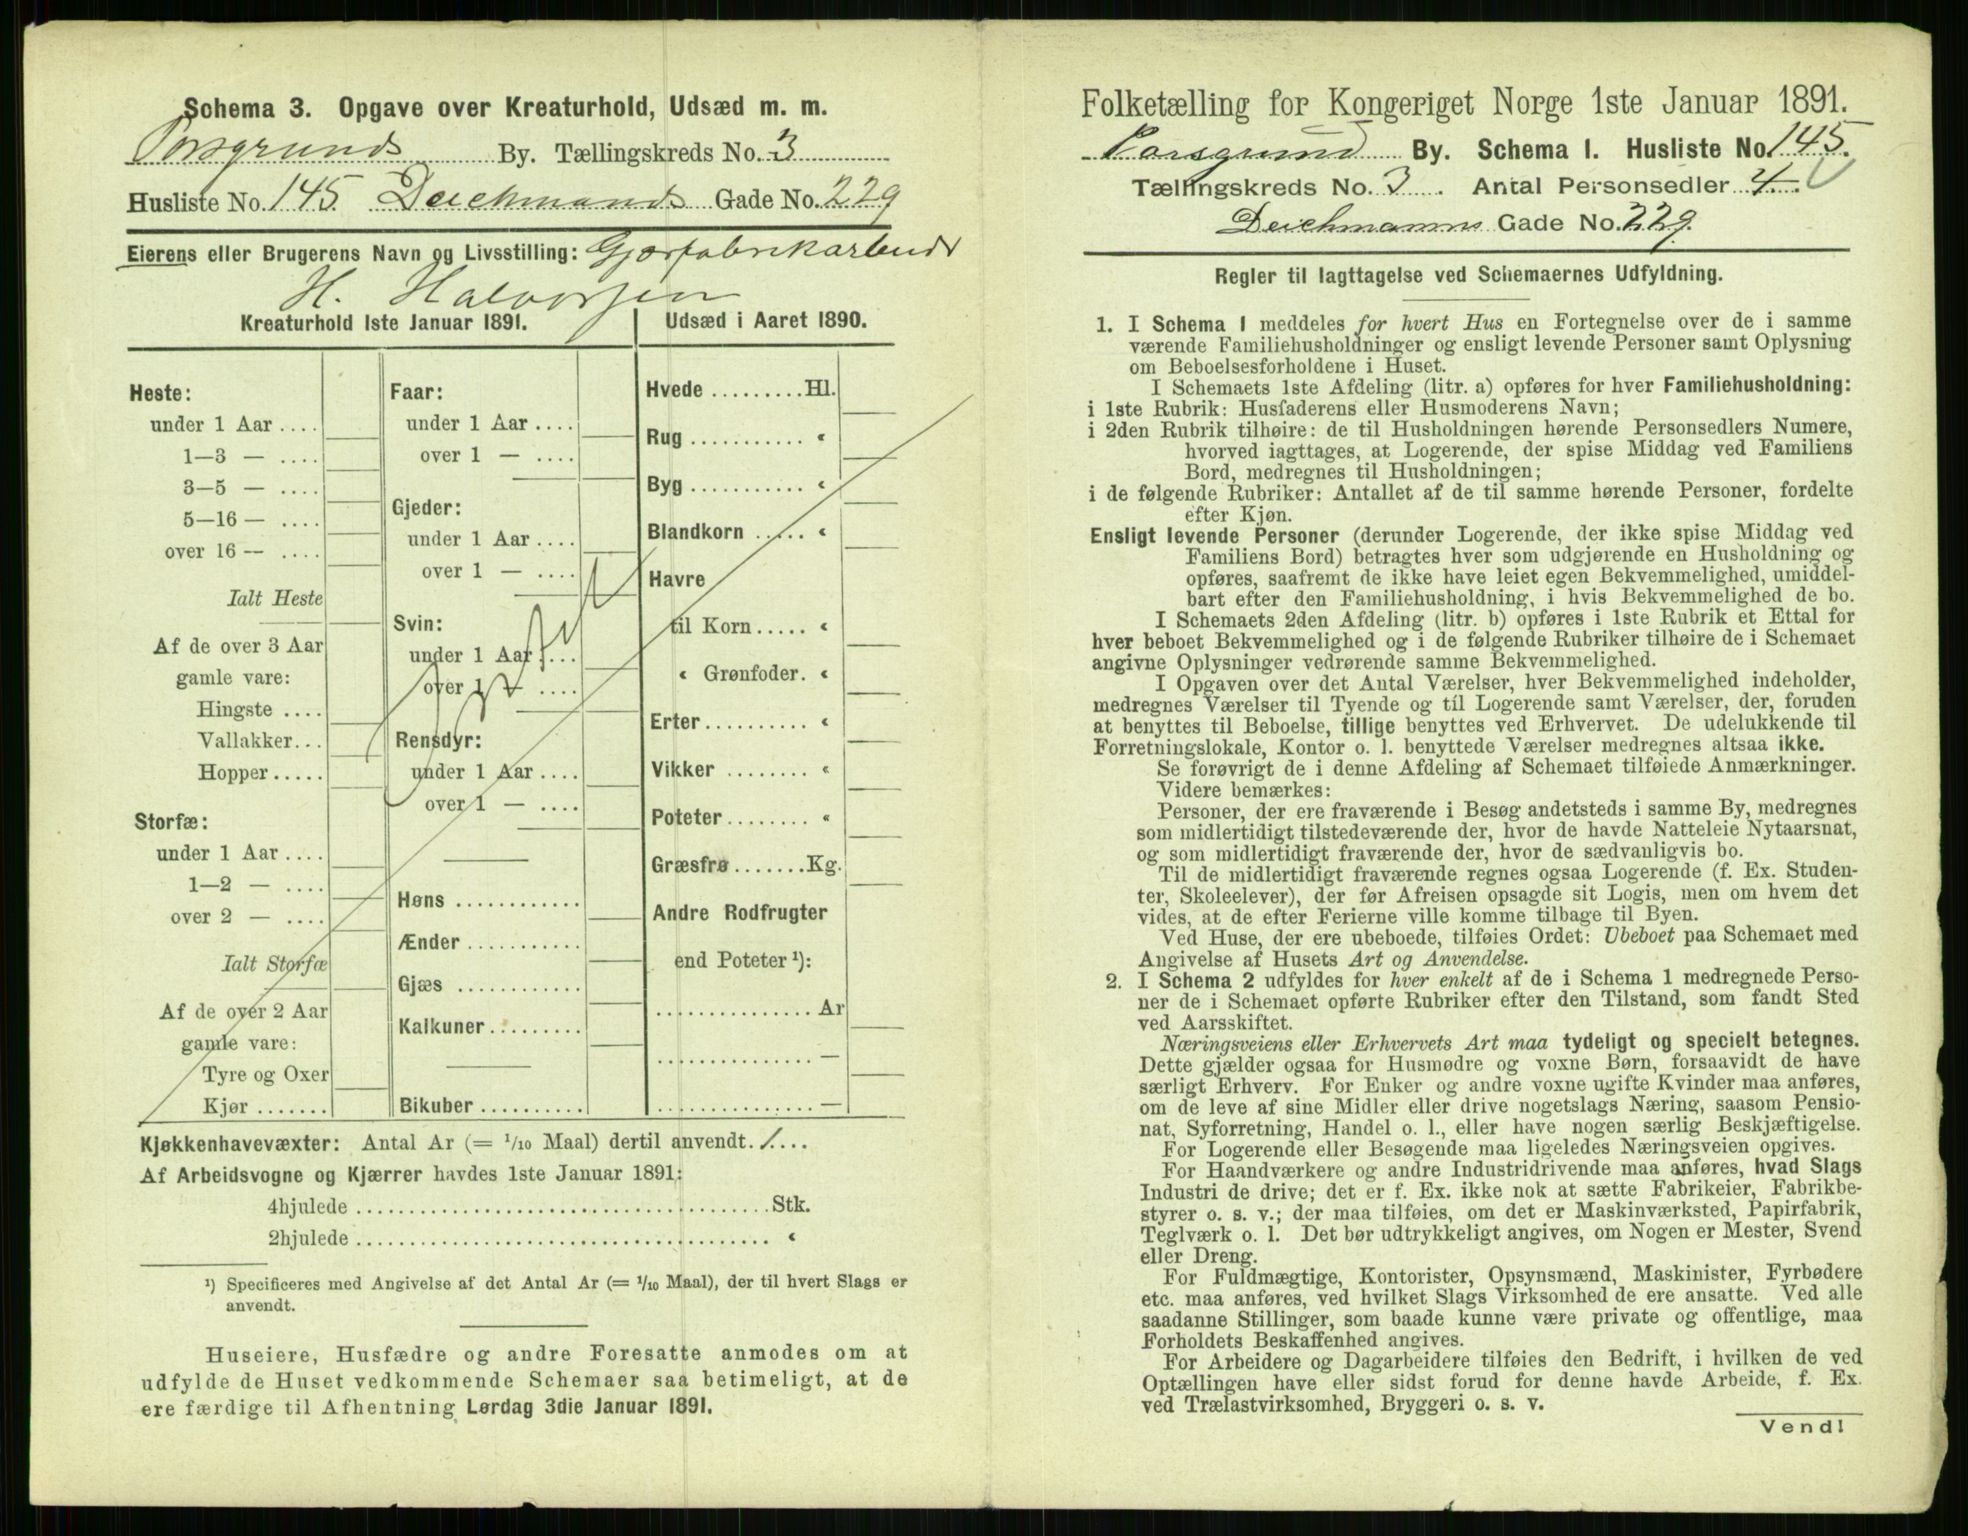 Schema 3. Opgave over Kreaturhold, Udsæd m. m.
Porsgrunds By. Tællingskreds No. 3
Husliste No. 145 Deichmands Gade No. 229
Eierens eller Brugerens Navn og Livsstilling:
H. Halvorsen
Kreaturhold 1ste Januar 1891.
Heste:
under 1 Aar ....
1—3 — ....
3—5 — ....
5—16 — ....
over 16 — ....
Ialt Heste
Af de over 3 Aar
gamle vare:
Hingste ....
Vallakker...
Hopper.....
Storfæ:
under 1 Aar ....
1—2 — ....
over 2 — ....
Ialt Storfæ
Af de over 2 Aar
gamle vare:
Tyre og Oxer
Kjør .......
Faar:
under 1 Aar ....
over 1 — ....
Gjeder:
under 1 Aar ....
over 1 — ....
Svin:
under 1 Aar ....
over 1 — ....
Rensdyr:
under 1 Aar ....
over 1 — ....
Høns ............
Ænder ...........
Gjæs ............
Kalkuner.........
Bikuber ..........
Udsæd i Aaret 1890.
Hvede .........Hl.
Rug ........... „
Byg ........... „
Blandkorn ..... „
Havre
til Korn..... „
„ Grønfoder. „
Erter.......... „
Vikker ........ „
Poteter........ „
Græsfrø .......Kg.
Andre Rodfrugter
end Poteter ¹):
............... Ar
............... —
............... —
Kjøkkenhavevæxter: Antal Ar (= 1/10 Maal) dertil anvendt. 1...
Af Arbeidsvogne og Kjærrer havdes 1ste Januar 1891:
4hjulede ..................................... Stk.
2hjulede ..................................... „
¹) Specificeres med Angivelse af det Antal Ar (= 1/10 Maal), der til hvert Slags er
anvendt.
Huseiere, Husfædre og andre Foresatte anmodes om at
udfylde de Huset vedkommende Schemaer saa betimeligt, at de
ere færdige til Afhentning Lørdag 3die Januar 1891.
Folketælling for Kongeriget Norge 1ste Januar 1891.
Porsgrund By. Schema I. Husliste No. 145.
Tællingskreds No. 3. Antal Personsedler 4.
Deichmanns Gade No. 229.
Regler til Iagttagelse ved Schemaernes Udfyldning.
1. I Schema 1 meddeles for hvert Hus en Fortegnelse over de i samme
værende Familiehusholdninger og ensligt levende Personer samt Oplysning
om Beboelsesforholdene i Huset.
I Schemaets 1ste Afdeling (litr. a) opføres for hver Familiehusholdning:
i 1ste Rubrik: Husfaderens eller Husmoderens Navn;
i 2den Rubrik tilhøire: de til Husholdningen hørende Personsedlers Numere,
hvorved iagttages, at Logerende, der spise Middag ved Familiens
Bord, medregnes til Husholdningen;
i de følgende Rubriker: Antallet af de til samme hørende Personer, fordelte
efter Kjøn.
Ensligt levende Personer (derunder Logerende, der ikke spise Middag ved
Familiens Bord) betragtes hver som udgjørende en Husholdning og
opføres, saafremt de ikke have leiet egen Bekvemmelighed, umiddel-
bart efter den Familiehusholdning, i hvis Bekvemmelighed de bo.
I Schemaets 2den Afdeling (litr. b) opføres i 1ste Rubrik et Ettal for
hver beboet Bekvemmelighed og i de følgende Rubriker tilhøire de i Schemaet
angivne Oplysninger vedrørende samme Bekvemmelighed.
I Opgaven over det Antal Værelser, hver Bekvemmelighed indeholder,
medregnes Værelser til Tyende og til Logerende samt Værelser, der, foruden
at benyttes til Beboelse, tillige benyttes ved Erhvervet. De udelukkende til
Forretningslokale, Kontor o. l. benyttede Værelser medregnes altsaa ikke.
Se forøvrigt de i denne Afdeling af Schemaet tilføiede Anmærkninger.
Videre bemærkes:
Personer, der ere fraværende i Besøg andetsteds i samme By, medregnes
som midlertidigt tilstedeværende der, hvor de havde Natteleie Nytaarsnat,
og som midlertidigt fraværende der, hvor de sædvanligvis bo.
Til de midlertidigt fraværende regnes ogsaa Logerende (f. Ex. Studen-
ter, Skoleelever), der før Afreisen opsagde sit Logis, men om hvem det
vides, at de efter Ferierne ville komme tilbage til Byen.
Ved Huse, der ere ubeboede, tilføies Ordet: Ubeboet paa Schemaet med
Angivelse af Husets Art og Anvendelse.
2. I Schema 2 udfyldes for hver enkelt af de i Schema 1 medregnede Perso-
ner de i Schemaet opførte Rubriker efter den Tilstand, som fandt Sted
ved Aarsskiftet.
Næringsveiens eller Erhvervets Art maa tydeligt og specielt betegnes.
Dette gjælder ogsaa for Husmødre og voxne Børn, forsaavidt de have
særligt Erhverv. For Enker og andre voxne ugifte Kvinder maa anføres,
om de leve af sine Midler eller drive nogetslags Næring, saasom Pensio-
nat, Syforretning, Handel o. l., eller have nogen særlig Beskjæftigelse.
For Logerende eller Besøgende maa ligeledes Næringsveien opgives.
For Haandværkere og andre Industridrivende maa anføres, hvad Slags
Industri de drive; det er f. Ex. ikke nok at sætte Fabrikeier, Fabrikbe-
styrer o. s. v.; der maa tilføies, om det er Maskinværksted, Papirfabrik,
Teglværk o. l. Det bør udtrykkeligt angives, om Nogen er Mester, Svend
eller Dreng.
For Fuldmægtige, Kontorister, Opsynsmænd, Maskinister, Fyrbødere
etc. maa anføres, ved hvilket Slags Virksomhed de ere ansatte. Ved alle
saadanne Stillinger, som baade kunne være private og offentlige, maa
Forholdets Beskaffenhed angives.
For Arbeidere og Dagarbeidere tilføies den Bedrift, i hvilken de ved
Optællingen have eller sidst forud for denne havde Arbeide, f. Ex.
ved Trælastvirksomhed, Bryggeri o. s. v.
Vend!